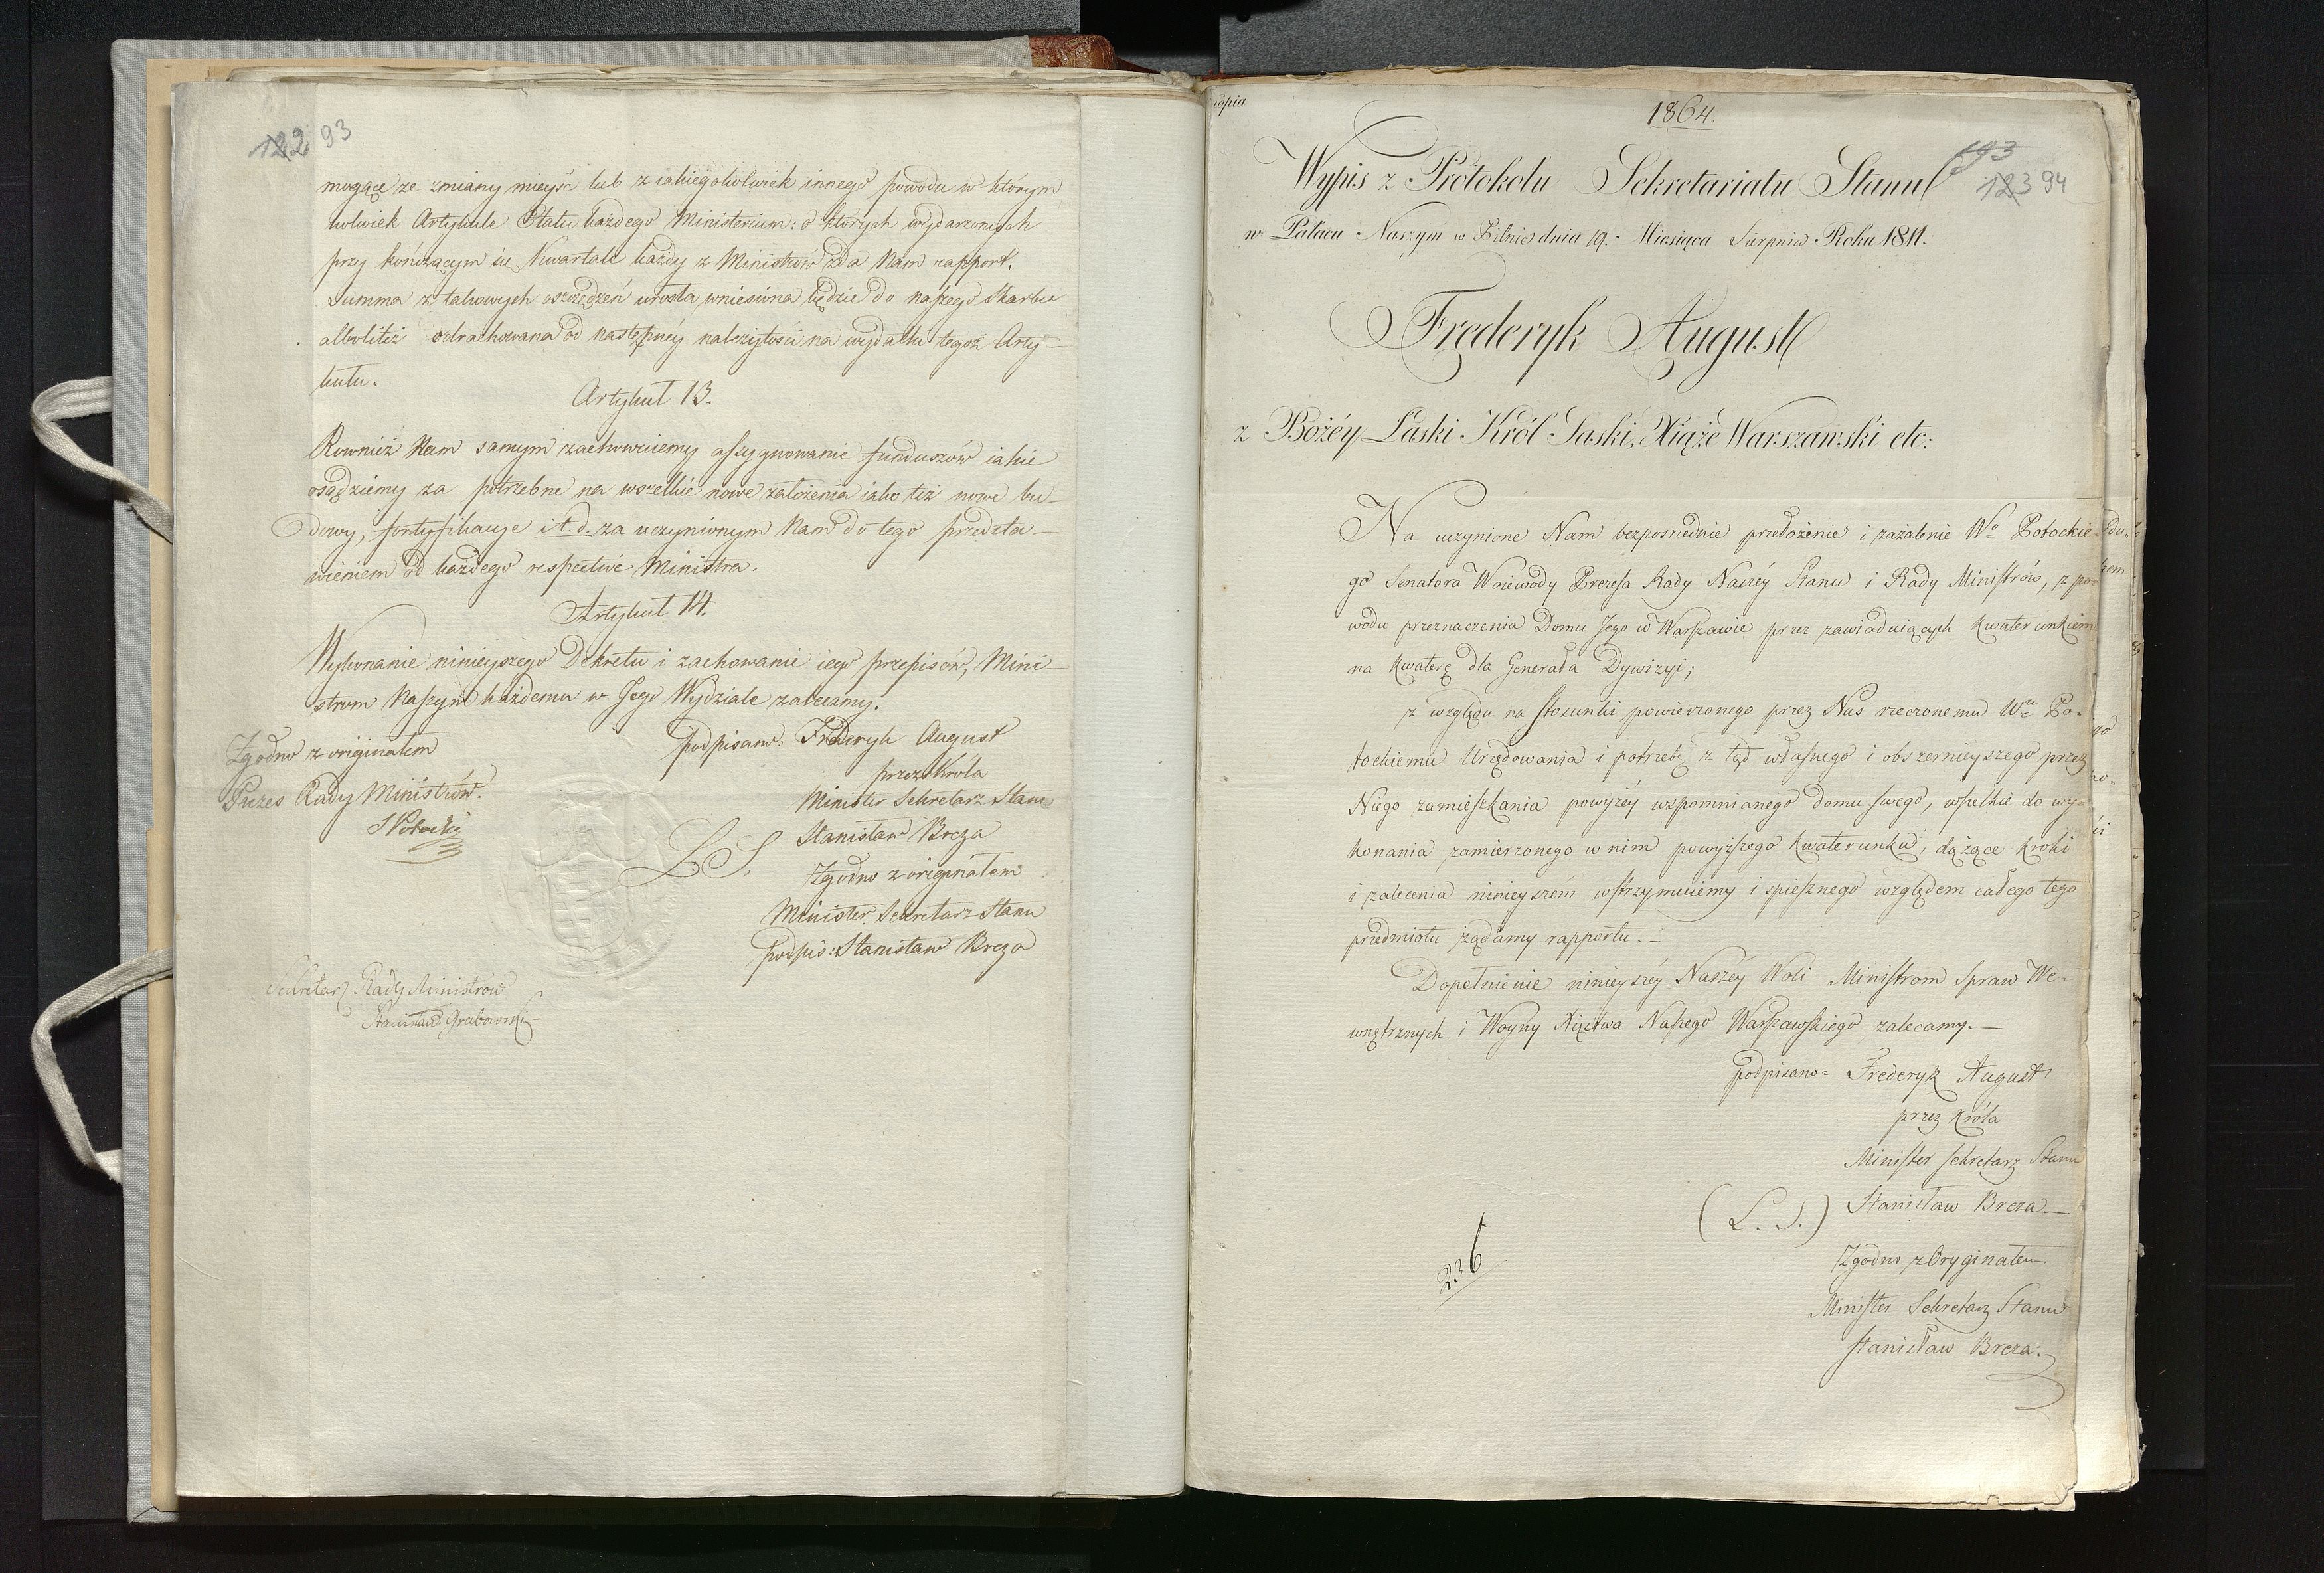 122 93
mogące ze zmiany mieysc lub z iakiegokolwiek innego powodu w którym
kolwiek Artykule Etatu każdego Ministerium: o których wydarzonych
przy kończącym się Kwartale każdy z Ministrów zda Nam rapport.
Summa z takowych oszczędzeń urosła, wniesiona będzie do naszego Skarbu
albolitéż odrachowana od następnéy należytości na wydatki tegoż Arty-
kułu.
Artykuł 13.
Rownież Nam samym zachowuiemy assygnowanie funduszów iakie
osądziemy za potrzebne na wszelkie nowe założenia iako też nowe bu-
dowy, fortyfikacye i t. d. za uczynionym Nam do tego przedsta-
wieniem od każdego respective Ministra.
Artykuł 14.
Wykonanie ninieyszego Dekretu i zachowanie iego przepisów, Mini-
strom Naszym każdemu w Jego Wydziale zalecamy.
podpisano: Frideryk August
przez Króla
Minister Sekretarz Stanu
L S. Stanisław Breza
Zgodno z originałem
Minister Sekretarz Stanu
podpis: Stanisław Breza
Zgodno z originałem
Prezes Rady Ministrów.
S Potocki
Sekretarz Rady Ministrów
Stanisław Grabowski
kopia
1864.
193
123 94
Wypis z Protokołu Sekretariatu Stanu
w Pałacu Naszym w Pilnic dnia 19. Miesiąca Sierpnia Roku 1811.
Frederyk August
z Bożéy Łaski Król Saski, Xiąże Warszawski etc:
Na uczynione Nam bezposrednie przełożenie i zażalenie Wo Potockie-
go Senatora Woiewody Prezesa Rady Naszéy Stanu i Rady Ministrów, z po-
wodu przeznaczenia Domu Jego w Warszawie przez zawiaduiących kwaterunkiem
na kwaterę dla Generała Dywizyi;
z względu na stosunki powierzonego przez Nas rzeczonemu Wu Po-
tockiemu Urzędowania i potrzebę z tąd własnego i obszernieyszego przez
Niego zamieszkania powyżéy wspomnionego domu swego, wszelkie do wy-
konania zamierzonego w nim powyższego kwaterunku, dążące kroki
i zalecenia ninieyszém wstrzymuiemy i spiesznego względem całego tego
przedmiotu żądamy rapportu. -
Dopełnienie ninieyszéy Naszéy Woli Ministrom Spraw We-
wnętrznych i Woyny Xięstwa Naszego Warszawskiego zalecamy. -
podpisano = Frederyk August
przez Króla
Minister Sekretarz Stanu
(L. S.) Stanisław Breza
Zgodno z Oryginałem
Minister Sekretarz Stanu
Stanisław Breza.
236